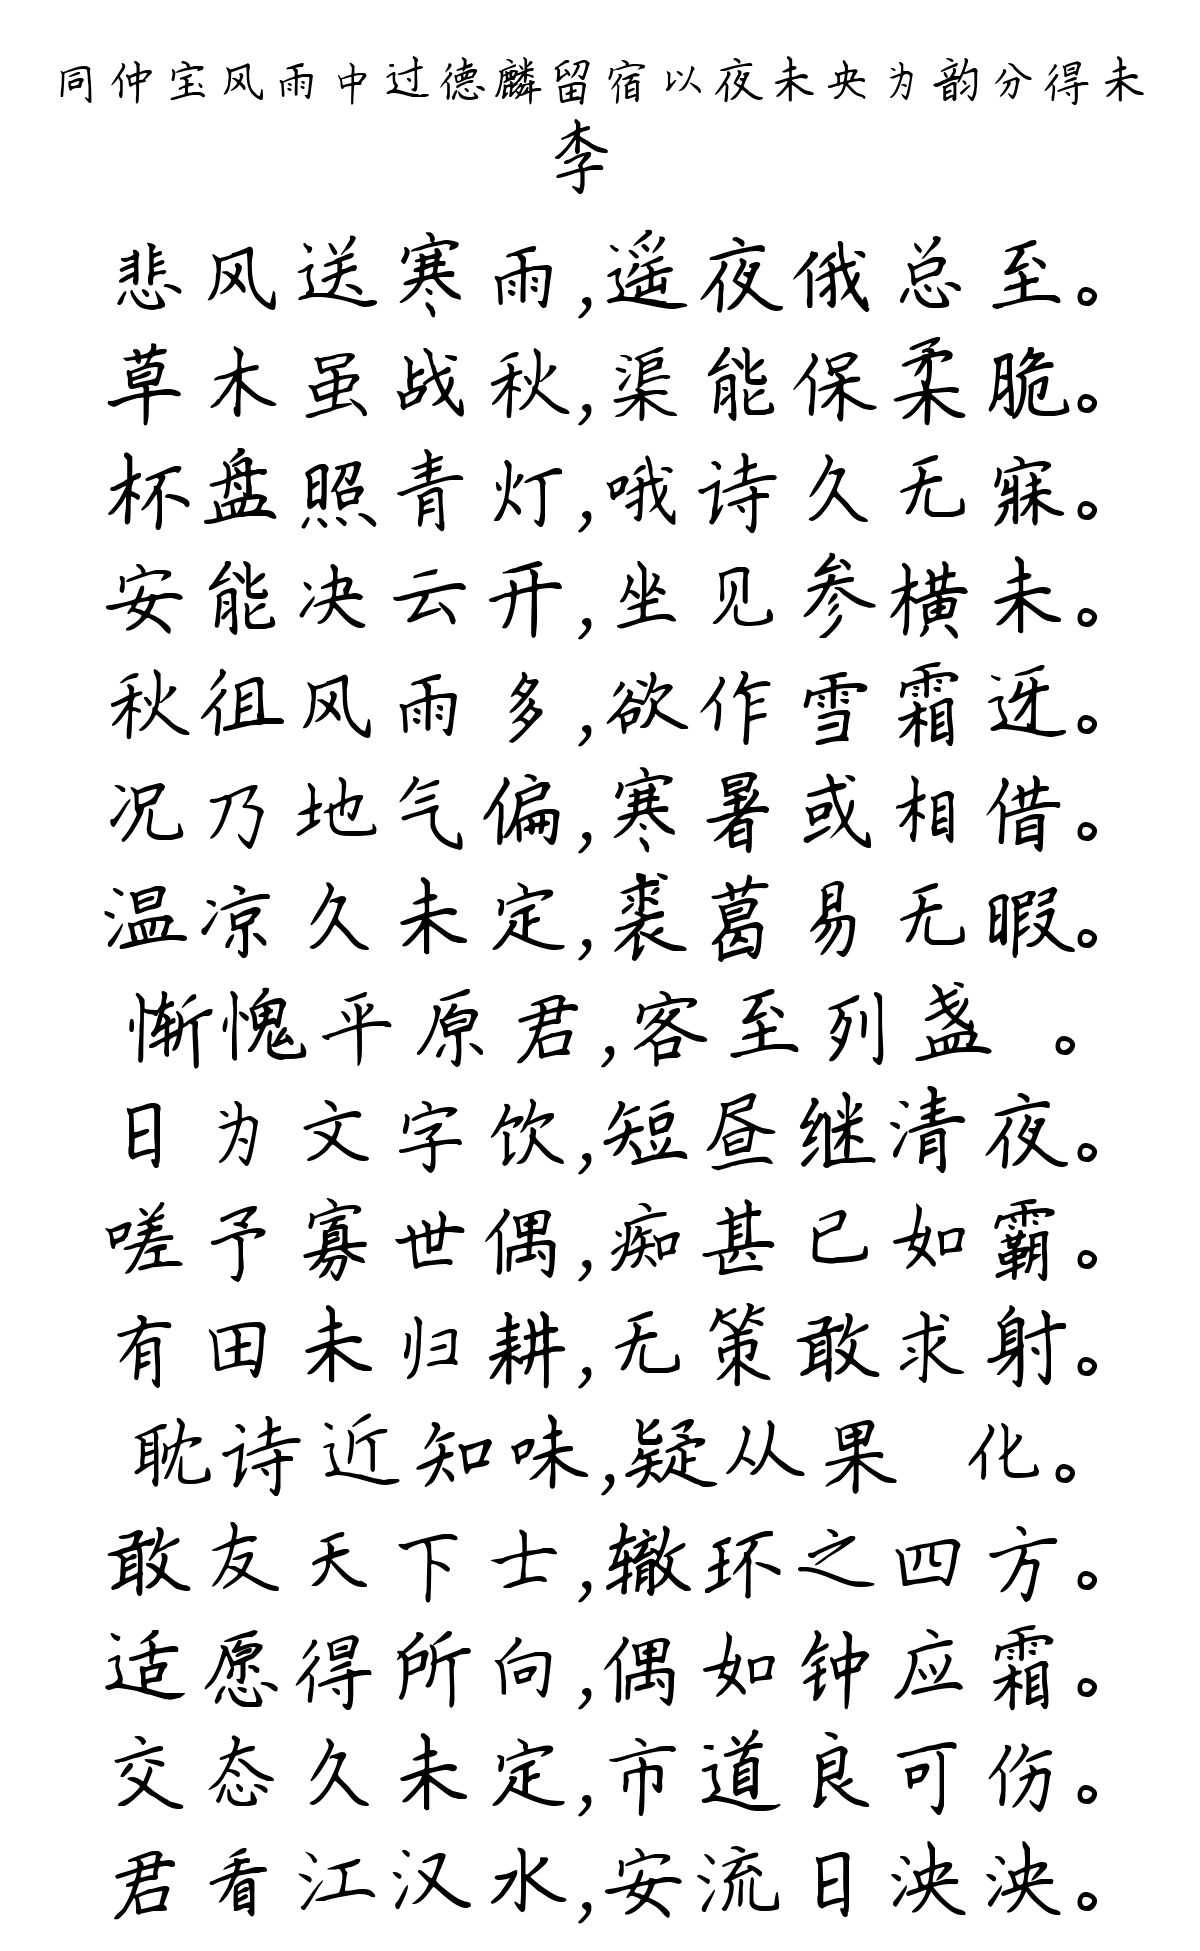 同仲宝风雨中过德麟留宿以夜未央为韵分得未
李
悲风送寒雨,遥夜俄总至。
草木虽战秋,渠能保柔脆。
杯盘照青灯,哦诗久无寐。
安能决云开,坐见参横未。
秋徂风雨多,欲作雪霜迓。
况乃地气偏,寒暑或相借。
温凉久未定,裘葛易无暇。
惭愧平原君,客至列盏 。
日为文字饮,短昼继清夜。
嗟予寡世偶,痴甚已如霸。
有田未归耕,无策敢求射。
耽诗近知味,疑从果 化。
敢友天下士,辙环之四方。
适愿得所向,偶如钟应霜。
交态久未定,市道良可伤。
君看江汉水,安流日泱泱。